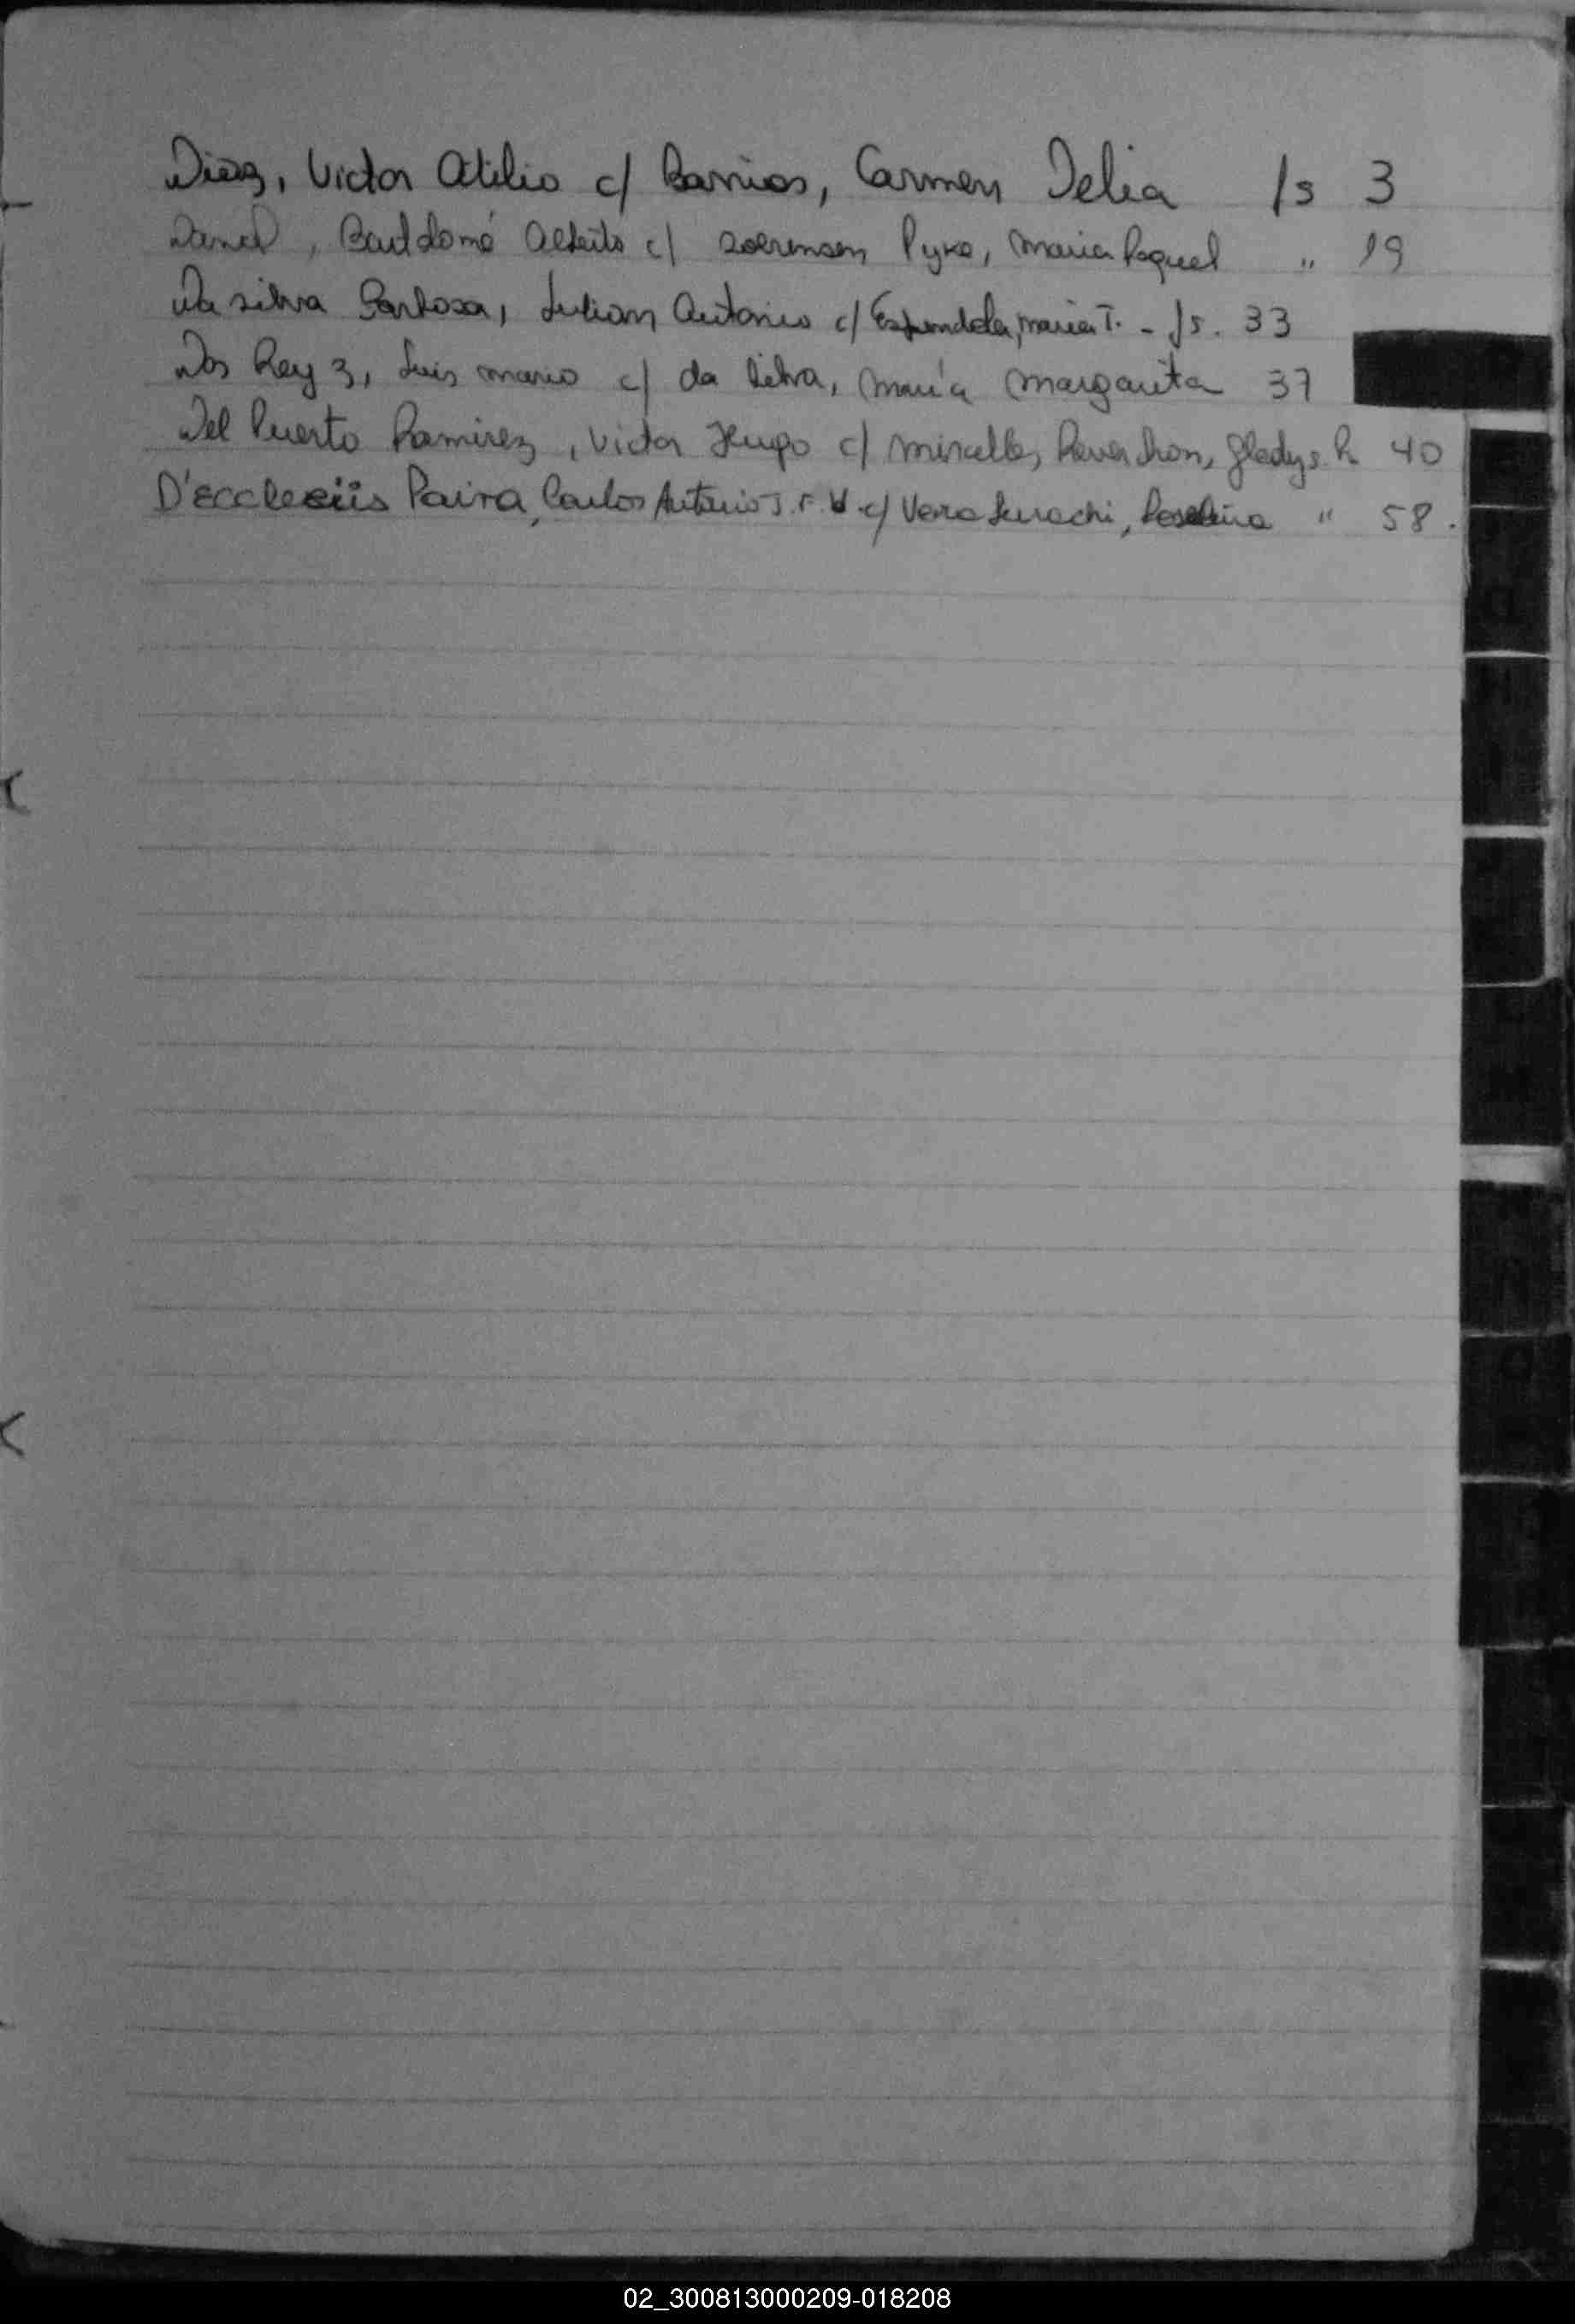 Diaz, Victor Atilio c/ Barrios, Carmen Delia fs 3
Daniel, Bartolomé Alberto c/ Soerensen Pyke, Maria Raquel " 19
Da Silva Barbosa, Julian Antonio c/ Espindola, Maria T. - fs. 33
Dos Reyz, Luis Mario c/ da Silva, María Margarita 37
Del Puerto Ramirez, Victor Hugo c/ Reverchon, Gladys R. 40
D'Ecclesiis Paiva, Carlos Antonio c/ Vera " 58.
02_300813000209-018208